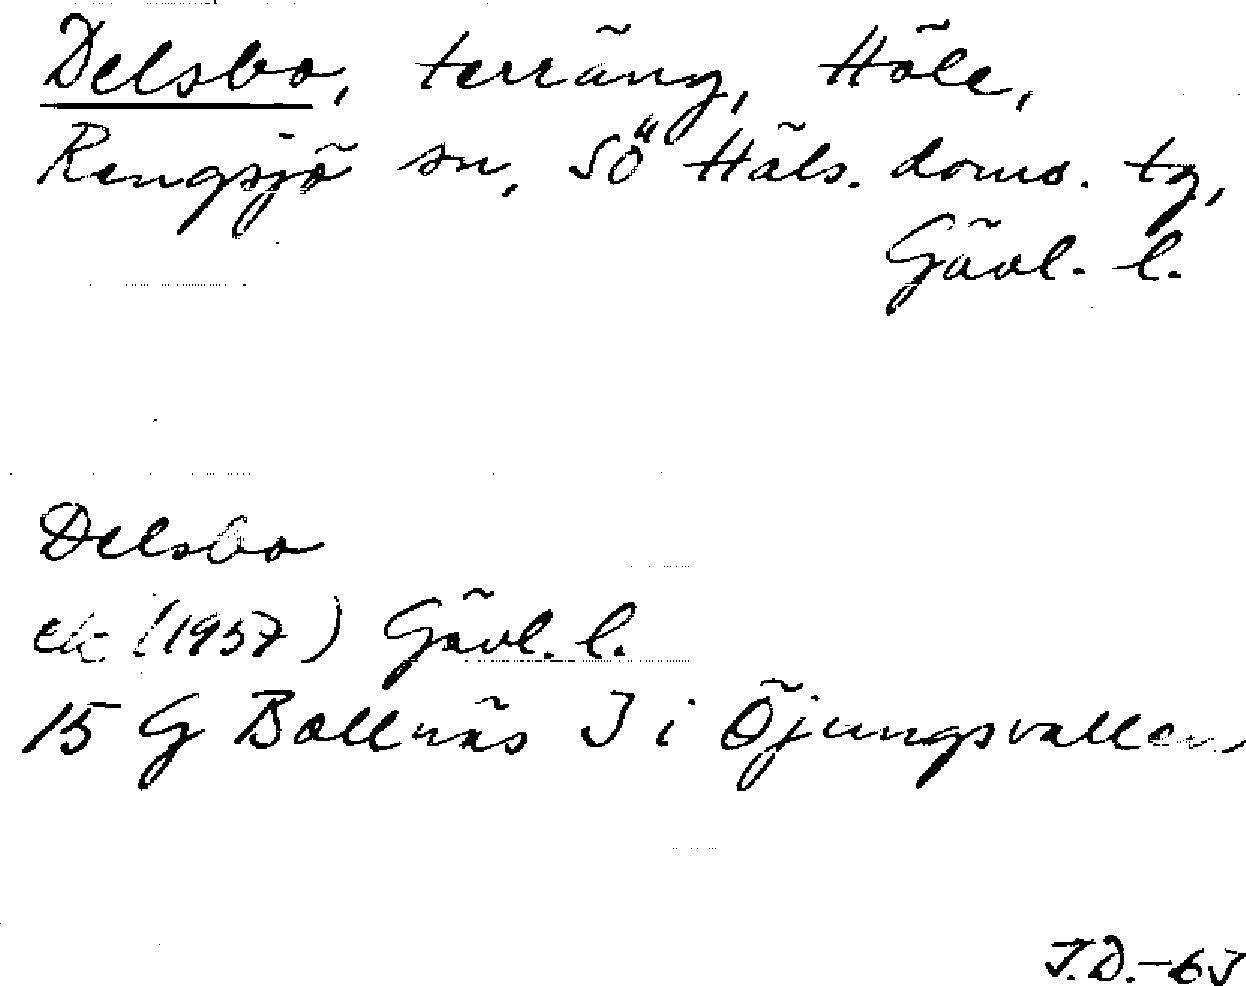 Delsbo, terräng, Höle,
Rengsjö sn, SÖ Häls. doms. tg,
Gävl. l.
Delsbo
ek (1957) Gävl. l.
15 G Bollnäs J i Öjungsvallen,